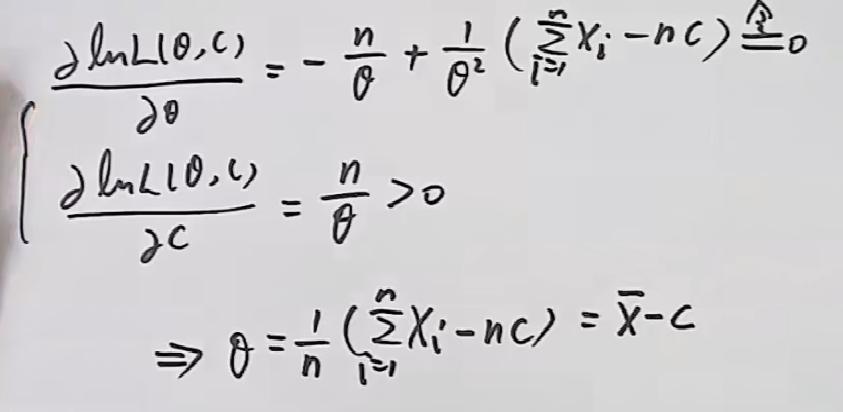 ∂lnL(θ,c)/∂θ = - n/θ + 1/θ² (∑_{i=1}^{n} X_i - nc) ≙ 0
∂lnL(θ,c)/∂c = n/θ > 0
⇒ θ = 1/n (∑_{i=1}^{n} X_i - nc) = X̄ - c